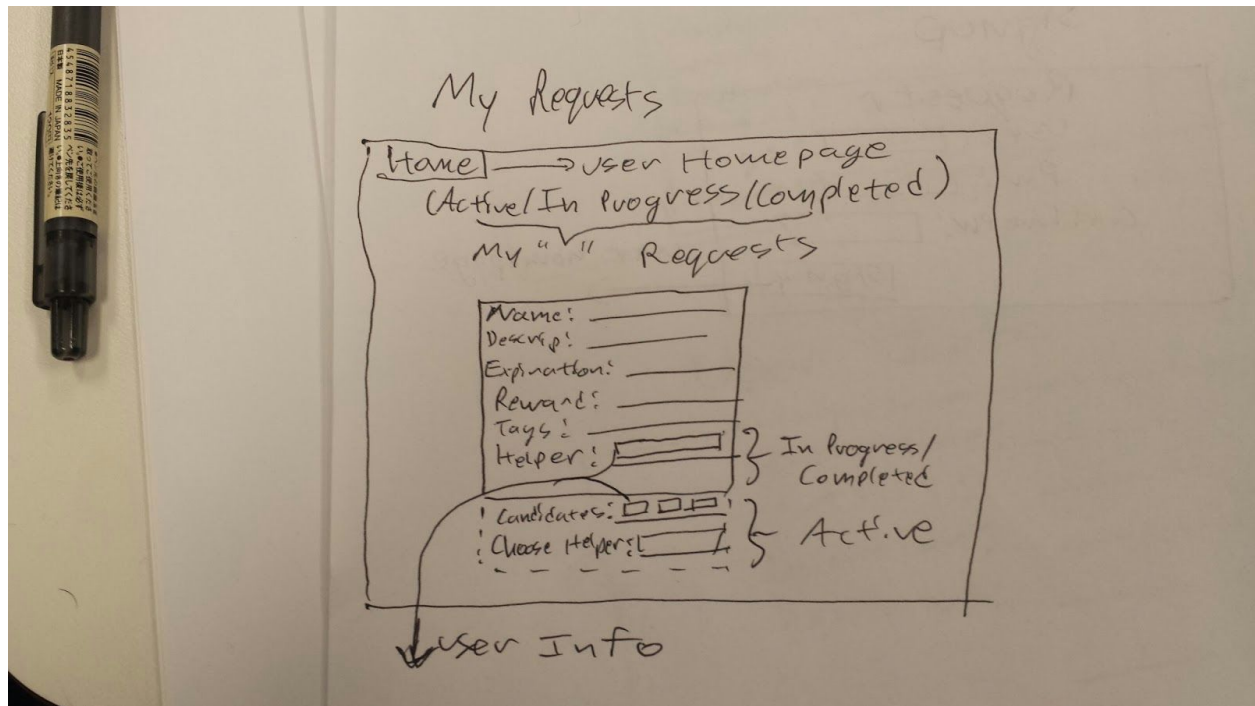 My Requests
Home → User Homepage
(Active/In Progress/Completed)
My " " Requests
Name:
Descrip:
Expiration:
Reward:
Tags:
Helper:
In Progress/
Completed
Candidates:
Choose Helper:
Active
User Info
4548718832835
MADE IN JAPAN